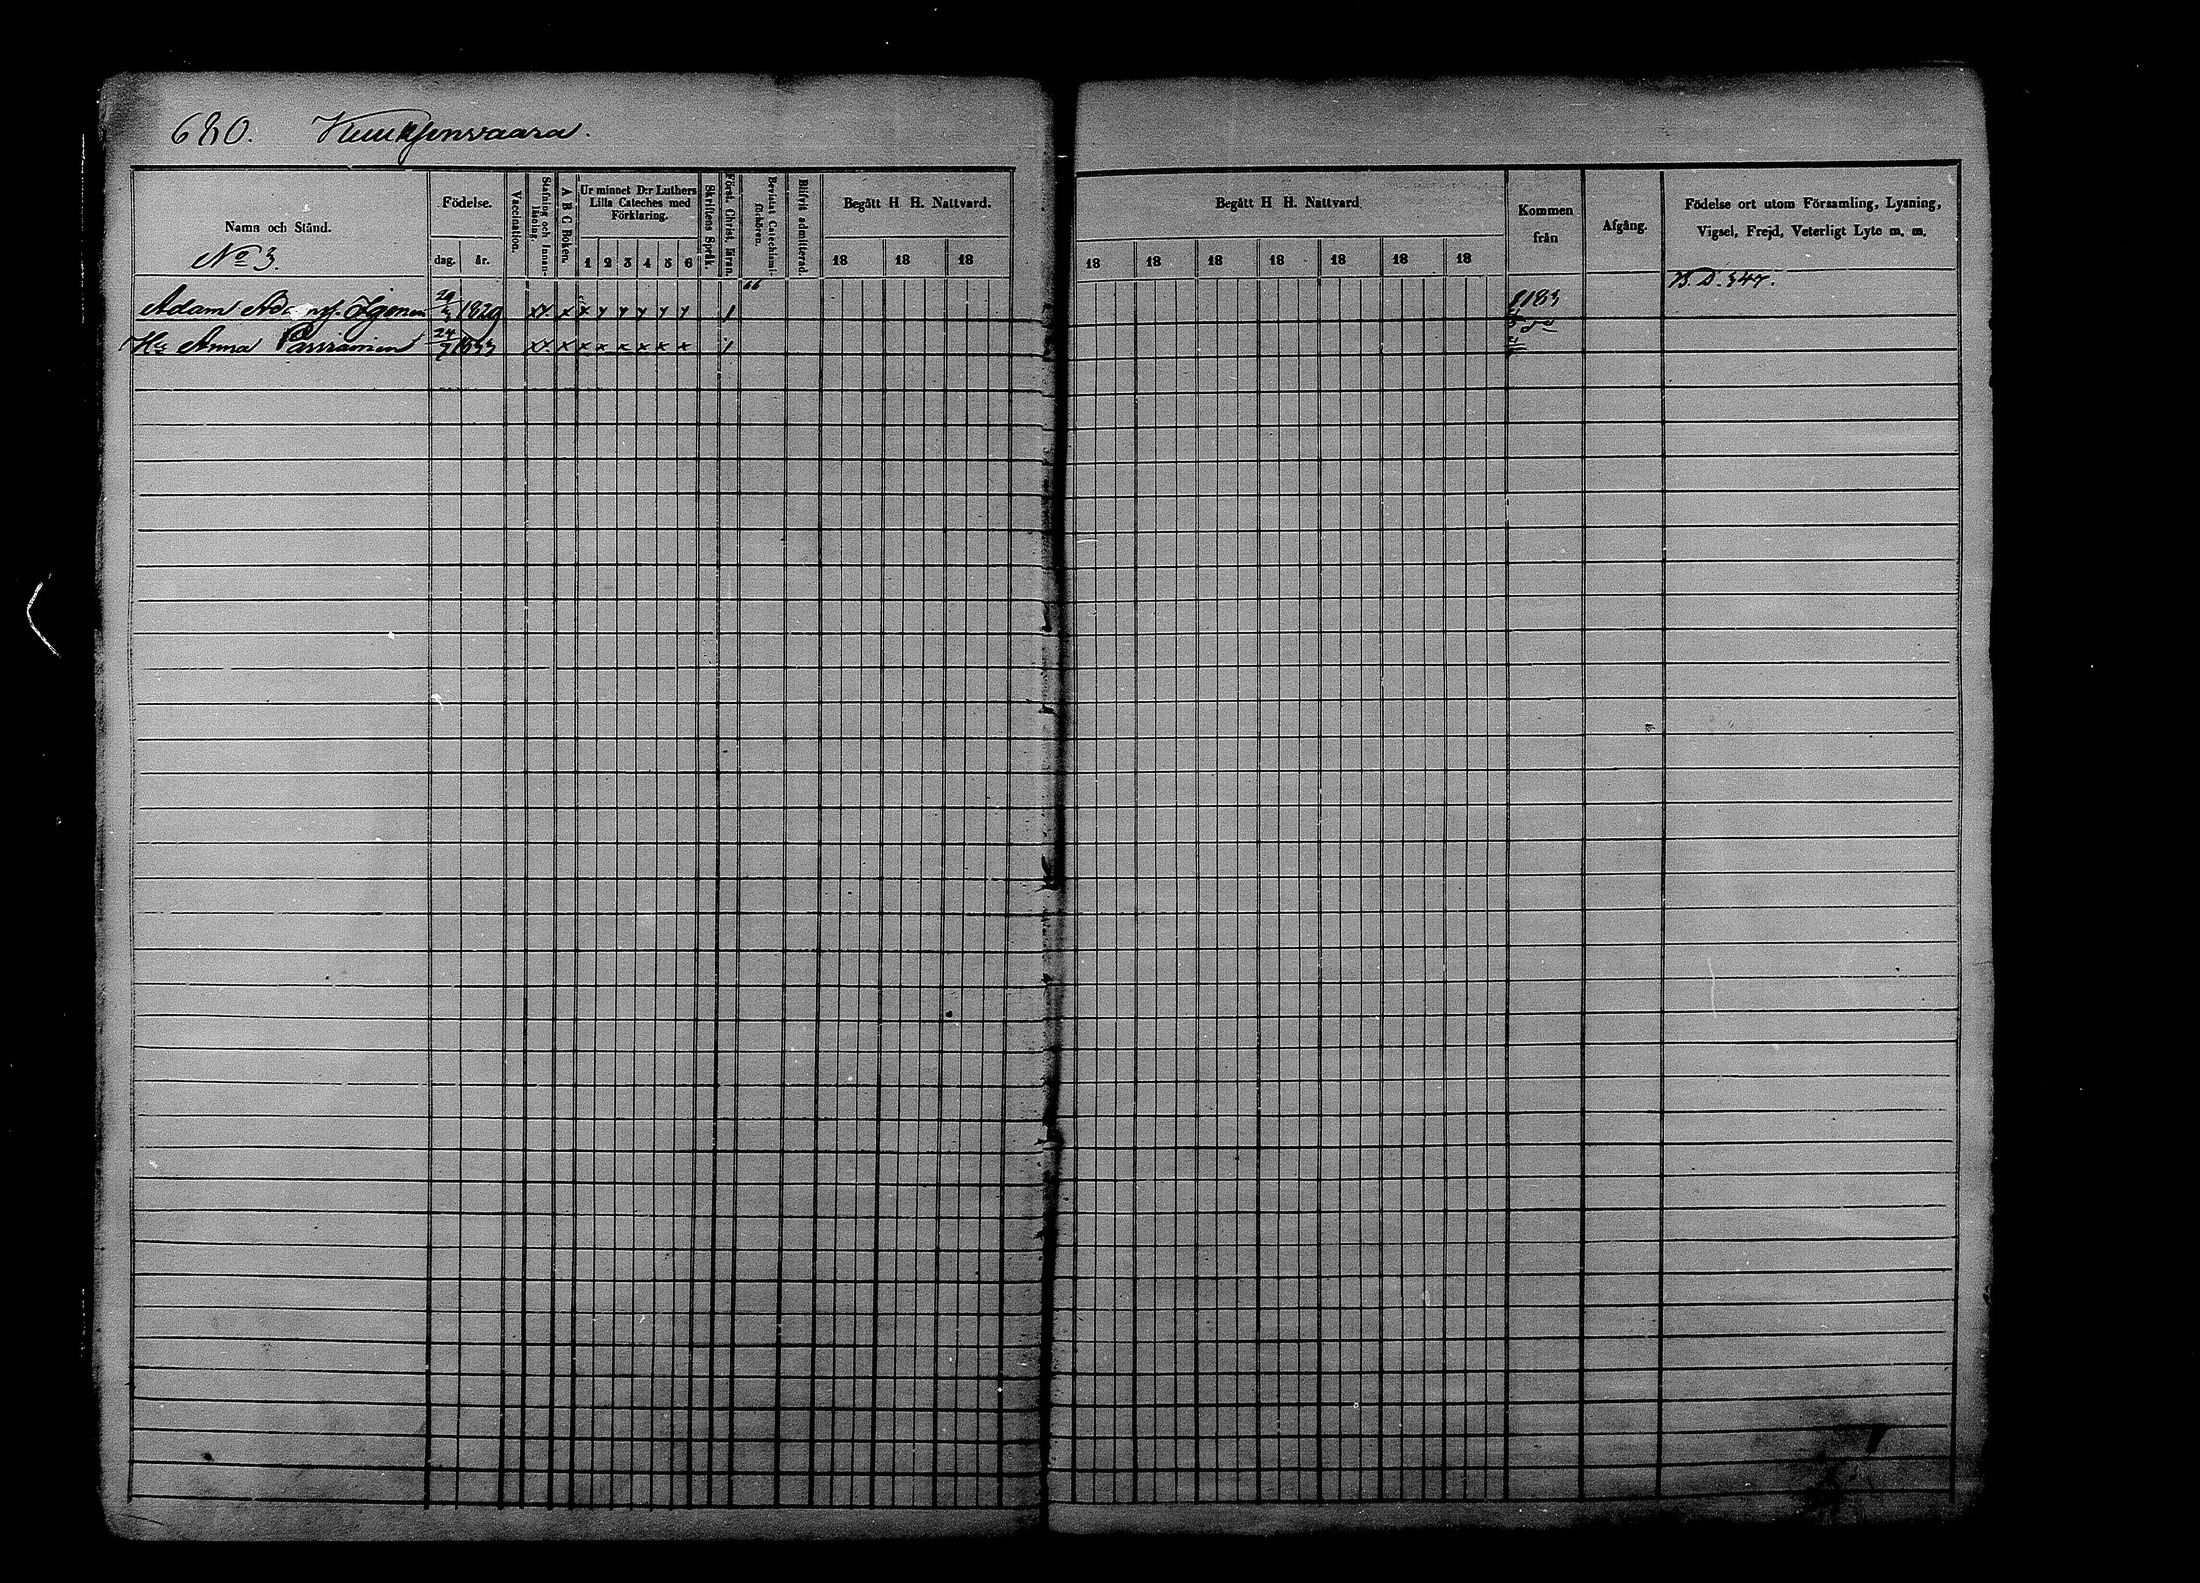 680. Kuuksenvaara.
Namn och Stånd.
No 3.
Födelse.
dag. år.
Vaccination.
Stafning och Innanläsning.
A B C Boken.
Ur minnet D:r Luthers
Lilla Cateches med
Förklaring.
1 2 3 4 5 6
Skriftens Språk.
Först. Christ. läran.
Bevistat Catechismi-
förhören.
Blifvit admitterad.
Begått H H. Nattvard.
18 18 18
Begått H H. Nattvard
18 18 18 18 18 18 18
Kommen
från
Afgång.
Födelse ort utom Församling, Lysning,
Vigsel, Frejd, Veterligt Lyte m. m.
66
B. D. 347.
Adam 29 1829 xx x x y y y y y 1
Hu Anna Parviainen 24/7 1833 xx x x x x x x x 1